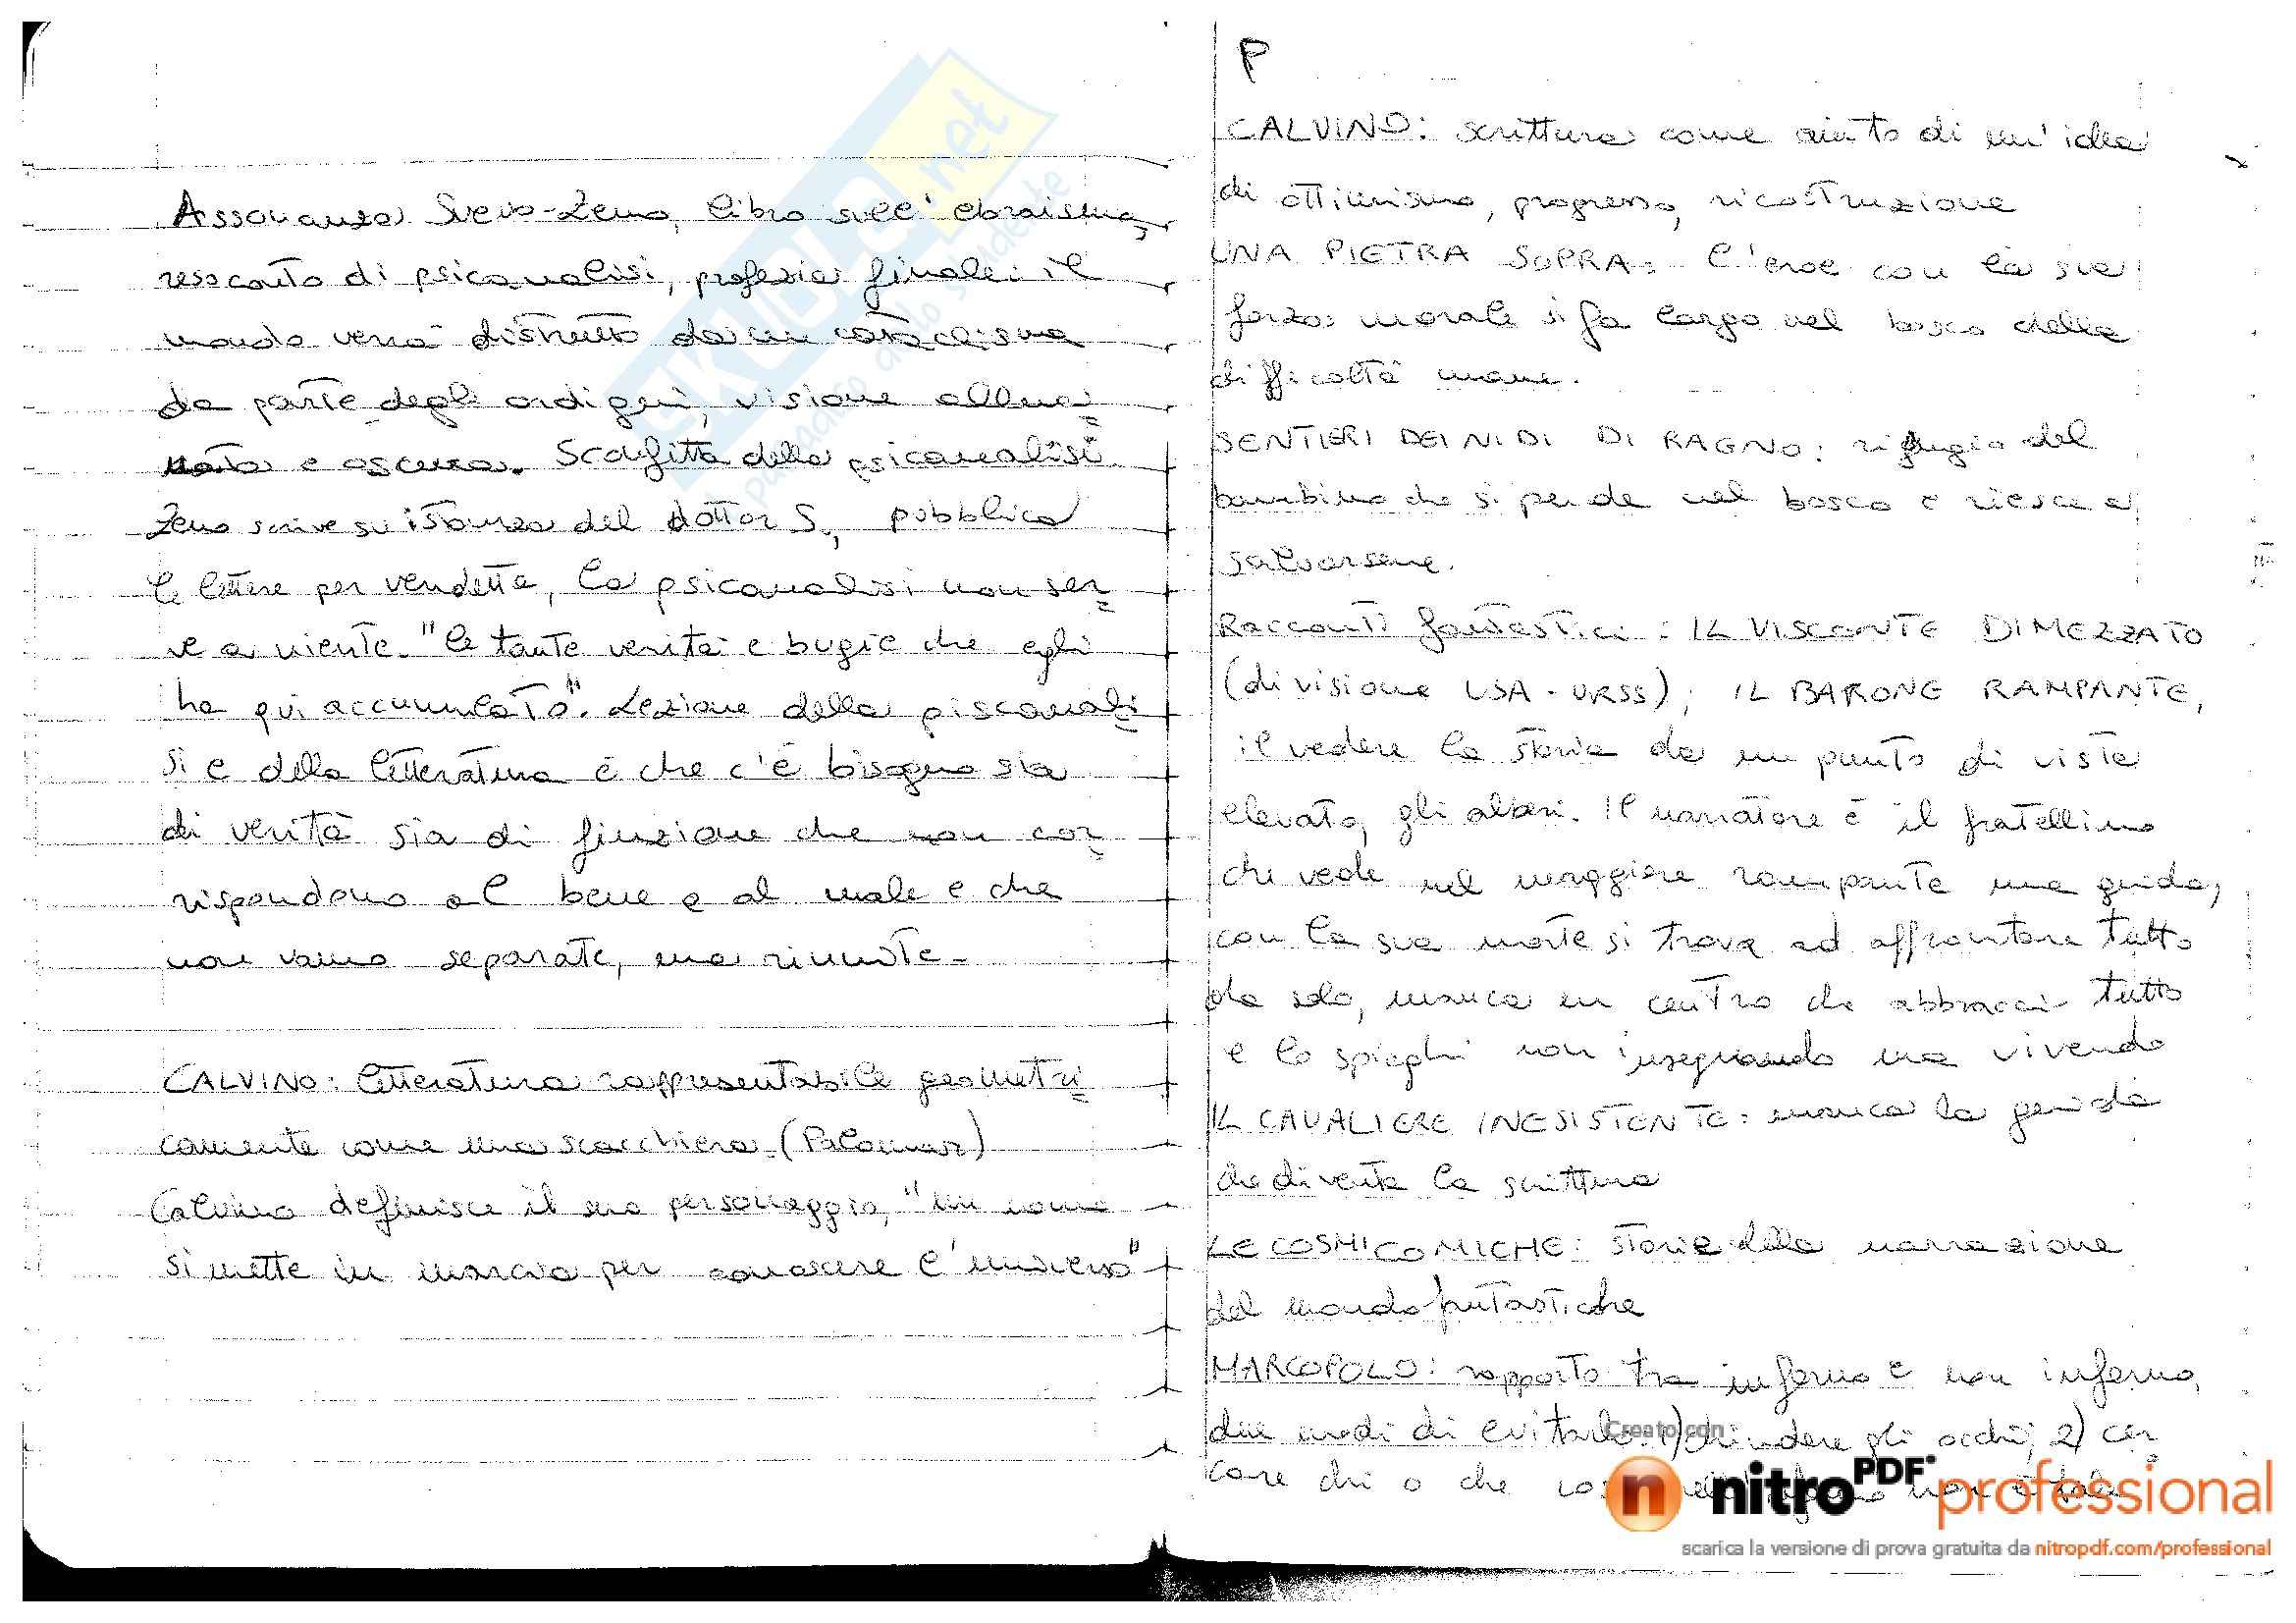 Assonanza Svevo-Zeno, libro sull'ebraismo,
resoconto di psicanalisi, profezia finale: il
mondo verrà distrutto da un cataclisma
da parte degli ordigni, visione alluci=
nata e oscura. Sconfitta della psicanalisi
Zeno scrive su istanza del dottor S, pubblica
le lettere per vendetta, la psicanalisi non ser=
ve a niente. "le tante verità e bugie che egli
ha qui accumulato". Lezione della piscanali=
si e della letteratura è che c'è bisogno sia
di verità sia di finzione che non cor=
rispondono al bene e al male e che
non vanno separate, ma riunite.
CALVINO: letteratura rappresentabile geometri=
camente come una scacchiera. (Palomar)
Calvino definisce il suo personaggio, "un uomo
si mette in marcia per conoscere l'universo"
P
CALVINO: scrittura come aiuto di un'idea
di ottimismo, progresso, ricostruzione
UNA PIETRA SOPRA: l'eroe con la sua
forza morale si fa largo nel bosco delle
difficoltà umane.
SENTIERI DEI NIDI DI RAGNO: rifugio del
bambino che si perde nel bosco e riesce a
salvarsene.
Racconti fantastici: IL VISCONTE DIMEZZATO
(divisione USA-URSS); IL BARONE RAMPANTE,
il vedere la storia da un punto di vista
elevato, gli alberi. Il narratore è il fratellino
che vede nel maggiore rampante una guida,
con la sua morte si trova ad affrontare tutto
da solo, manca un centro che abbracci tutto
e lo spieghi non insegnando ma vivendo
IL CAVALIERE INESISTENTE: manca la guida
che diventa la scrittura
LE COSMICOMICHE: storie della narrazione
del mondo fantastiche
MARCOPOLO: rapporto tra inferno e non inferno,
due modi di evitarlo: 1) chiudere gli occhi; 2) cer=
care chi o che non è
SKUOLA.net
paradiso dello studente
Creato con
nitroPDF professional
scarica la versione di prova gratuita da nitropdf.com/professional